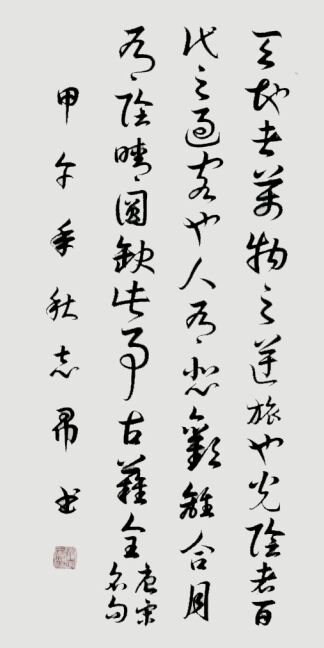 天地者萬物之逆旅也光陰者百
代之過客也人有悲歡離合月
有陰晴圓缺此事古難全
唐宋
名句
甲午年秋志书